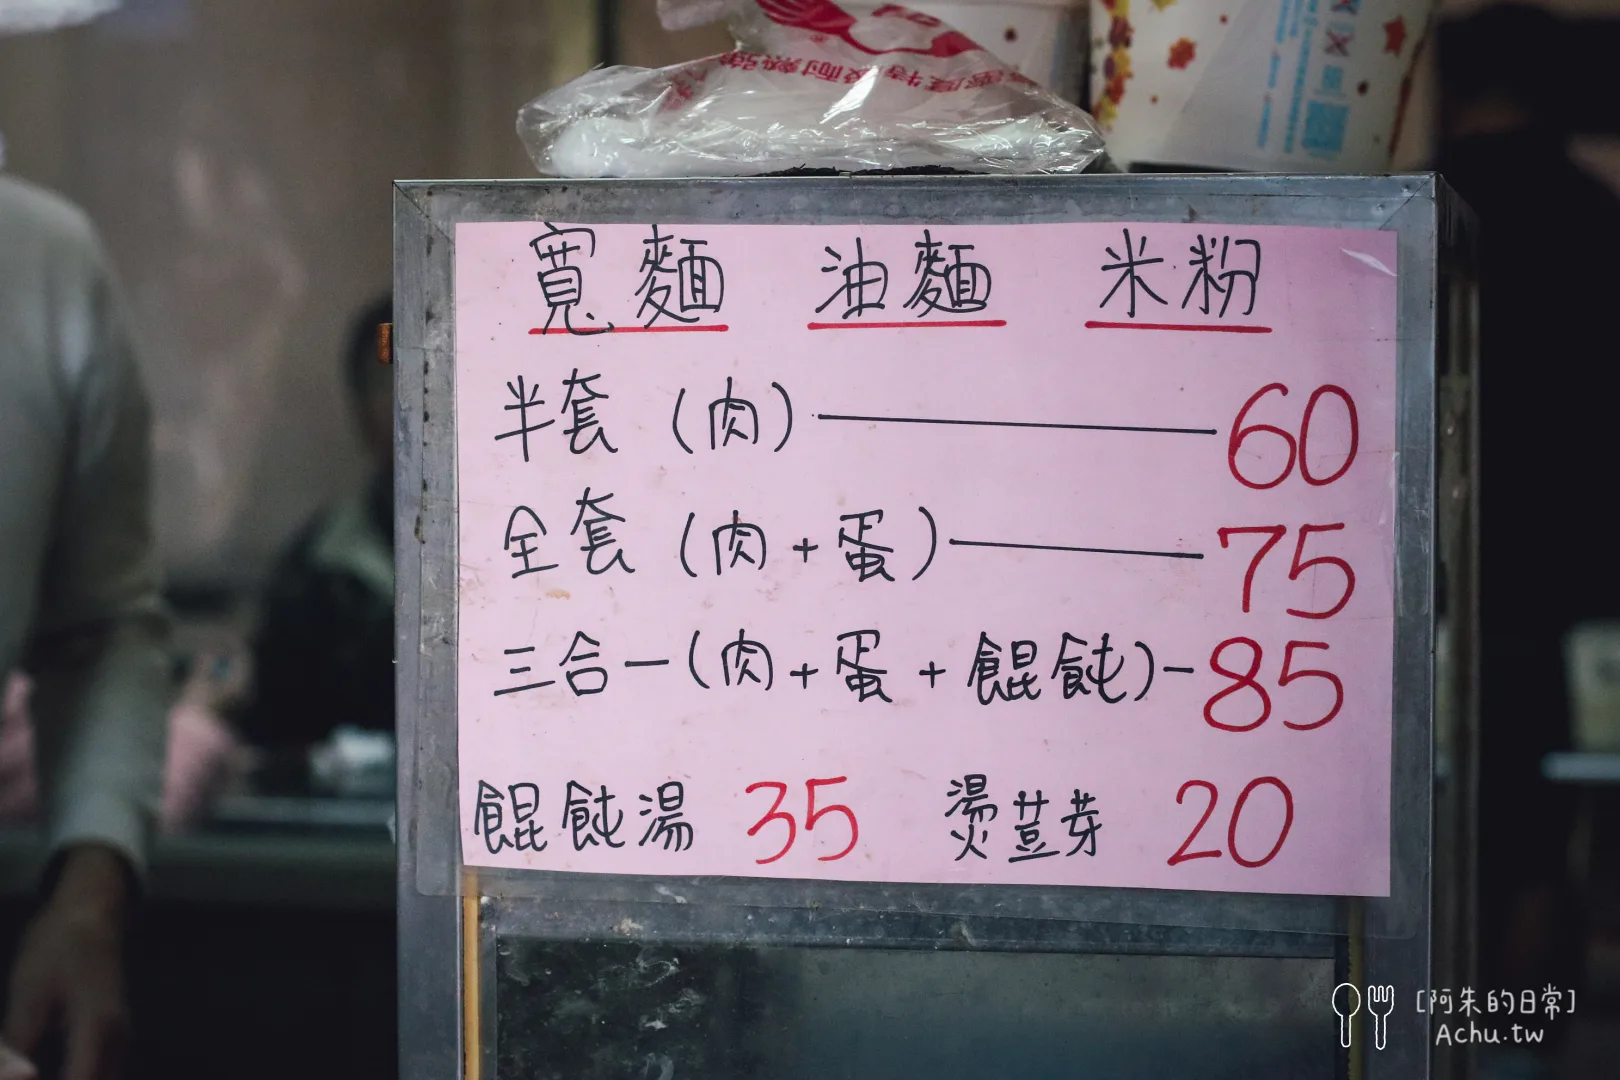 寬麵 油麵 米粉
半套 (肉) 60
全套 (肉+蛋) 75
三合一(肉+蛋+餛飩)-85
餛飩湯 35 燙荳芽 20
[阿朱的日常]
Achu.tw